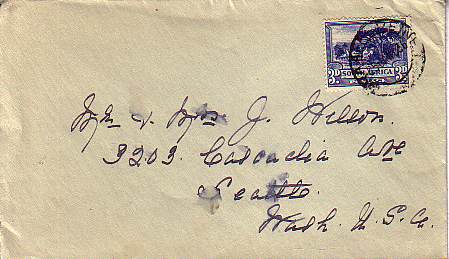 3D SOUTH AFRICA 3D
Mr. & Mrs J. Wilson.
3203. Cascadia Ave
Seattle.
Wash. U.S.A.